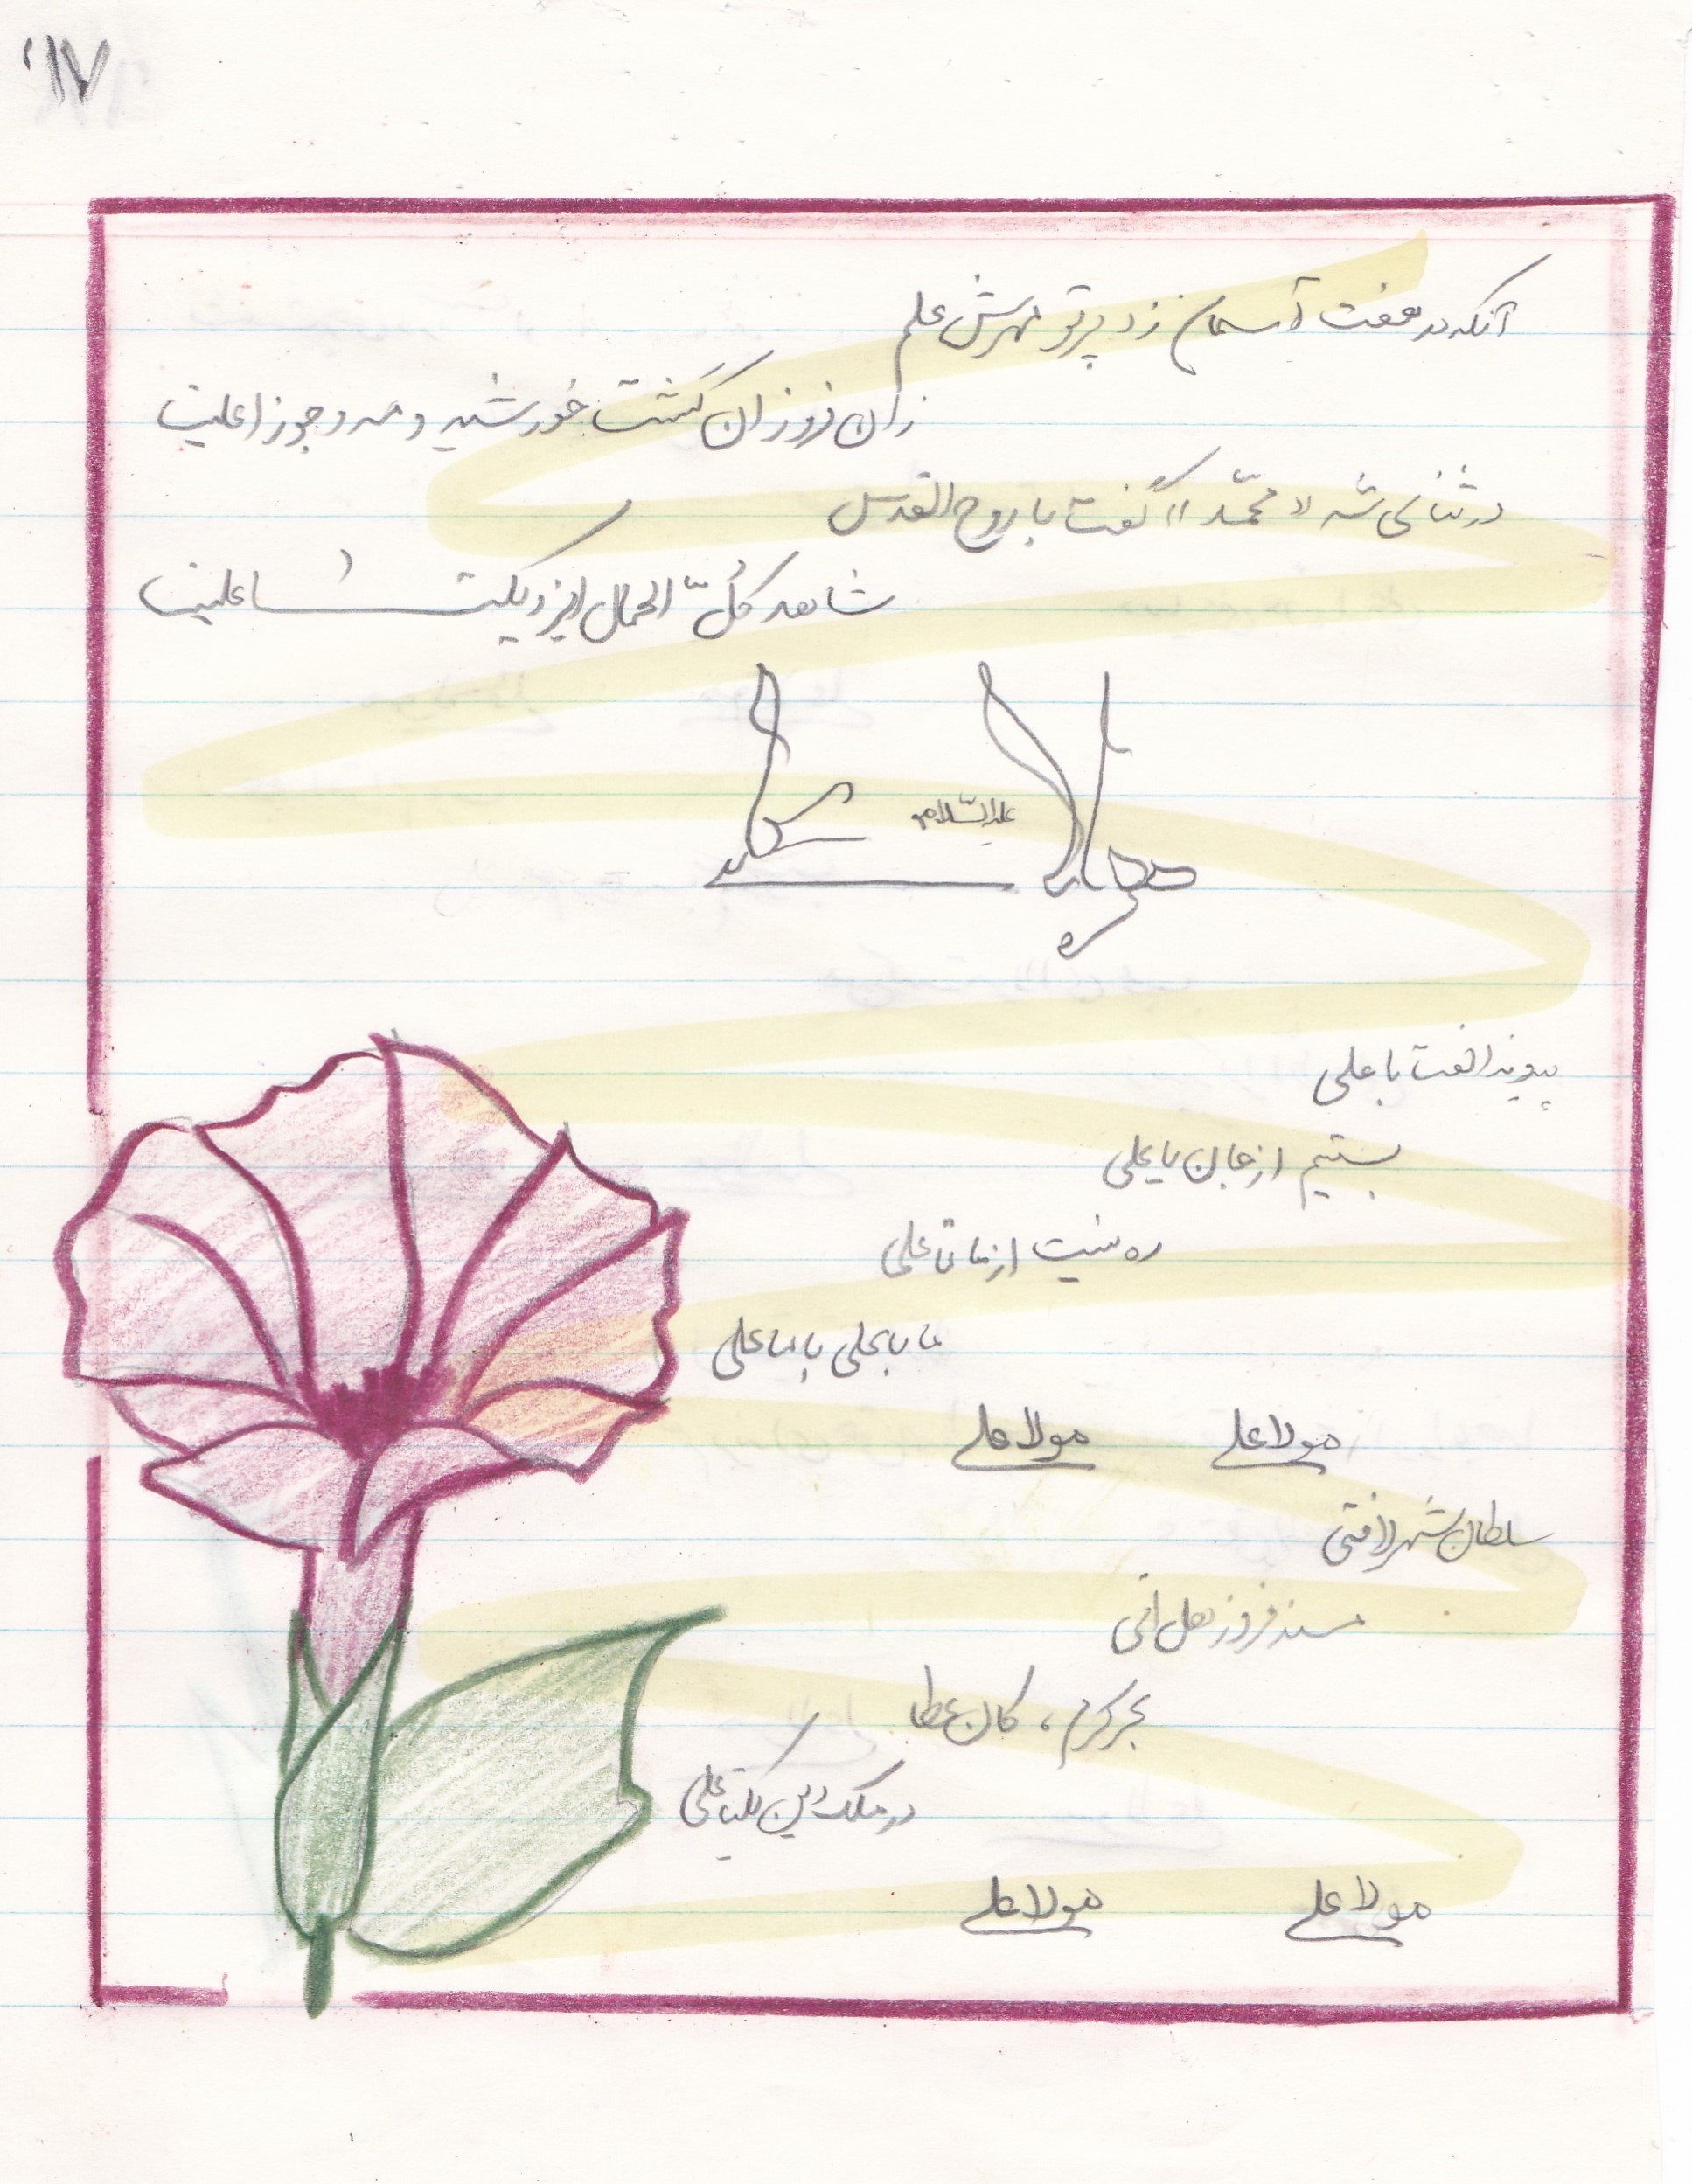 ۱۷
آنکه در هفت آسمان زد پرتو مهرش علم
زان فروزان گشت خورشید و مه و جوزا علیت
در ثنای شه «محمّد» گفت با روح القدس
شاهد کلّ الجمال ایزد یکتا علیت
مولا علی
علیه السّلام
پیوند الفت با علی
بستیم از جان با علی
ره نیست از ما تا علی
ما با علی با ما علی
مولا علی مولا علی
سلطان شهر لافتی
مسند فروز هل اتی
بحر کرم، کان عطا
در ملک دین یکتا علی
مولا علی مولا علی